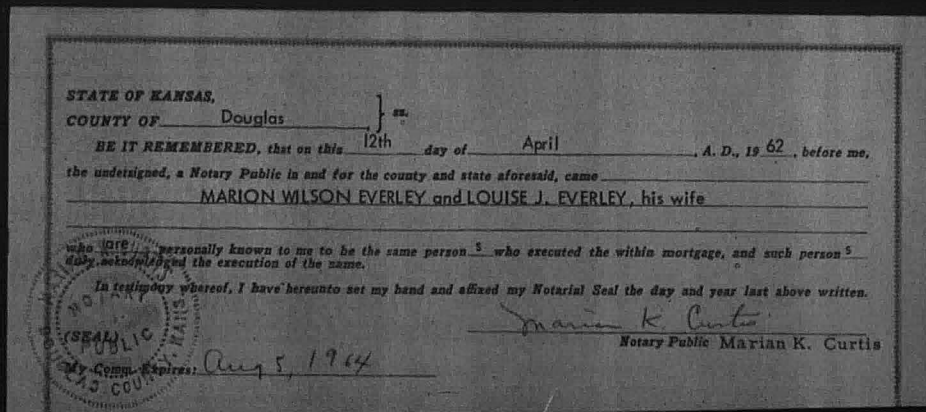 STATE OF KANSAS,
COUNTY OF Douglas } ss.
BE IT REMEMBERED, that on this 12th day of April, A. D., 19 62, before me,
the undersigned, a Notary Public in and for the county and state aforesaid, came
MARION WILSON EVERLEY and LOUISE J. EVERLEY, his wife
who are personally known to me to be the same person s who executed the within mortgage, and such person s
duly acknowledged the execution of the same.
In testimony whereof, I have hereunto set my hand and affixed my Notarial Seal the day and year last above written.
Marian K. Curtis
(SEAL)
Notary Public Marian K. Curtis
My Comm. Expires: Aug 5, 1964
NOTARY
PUBLIC
COUNTY, KANS